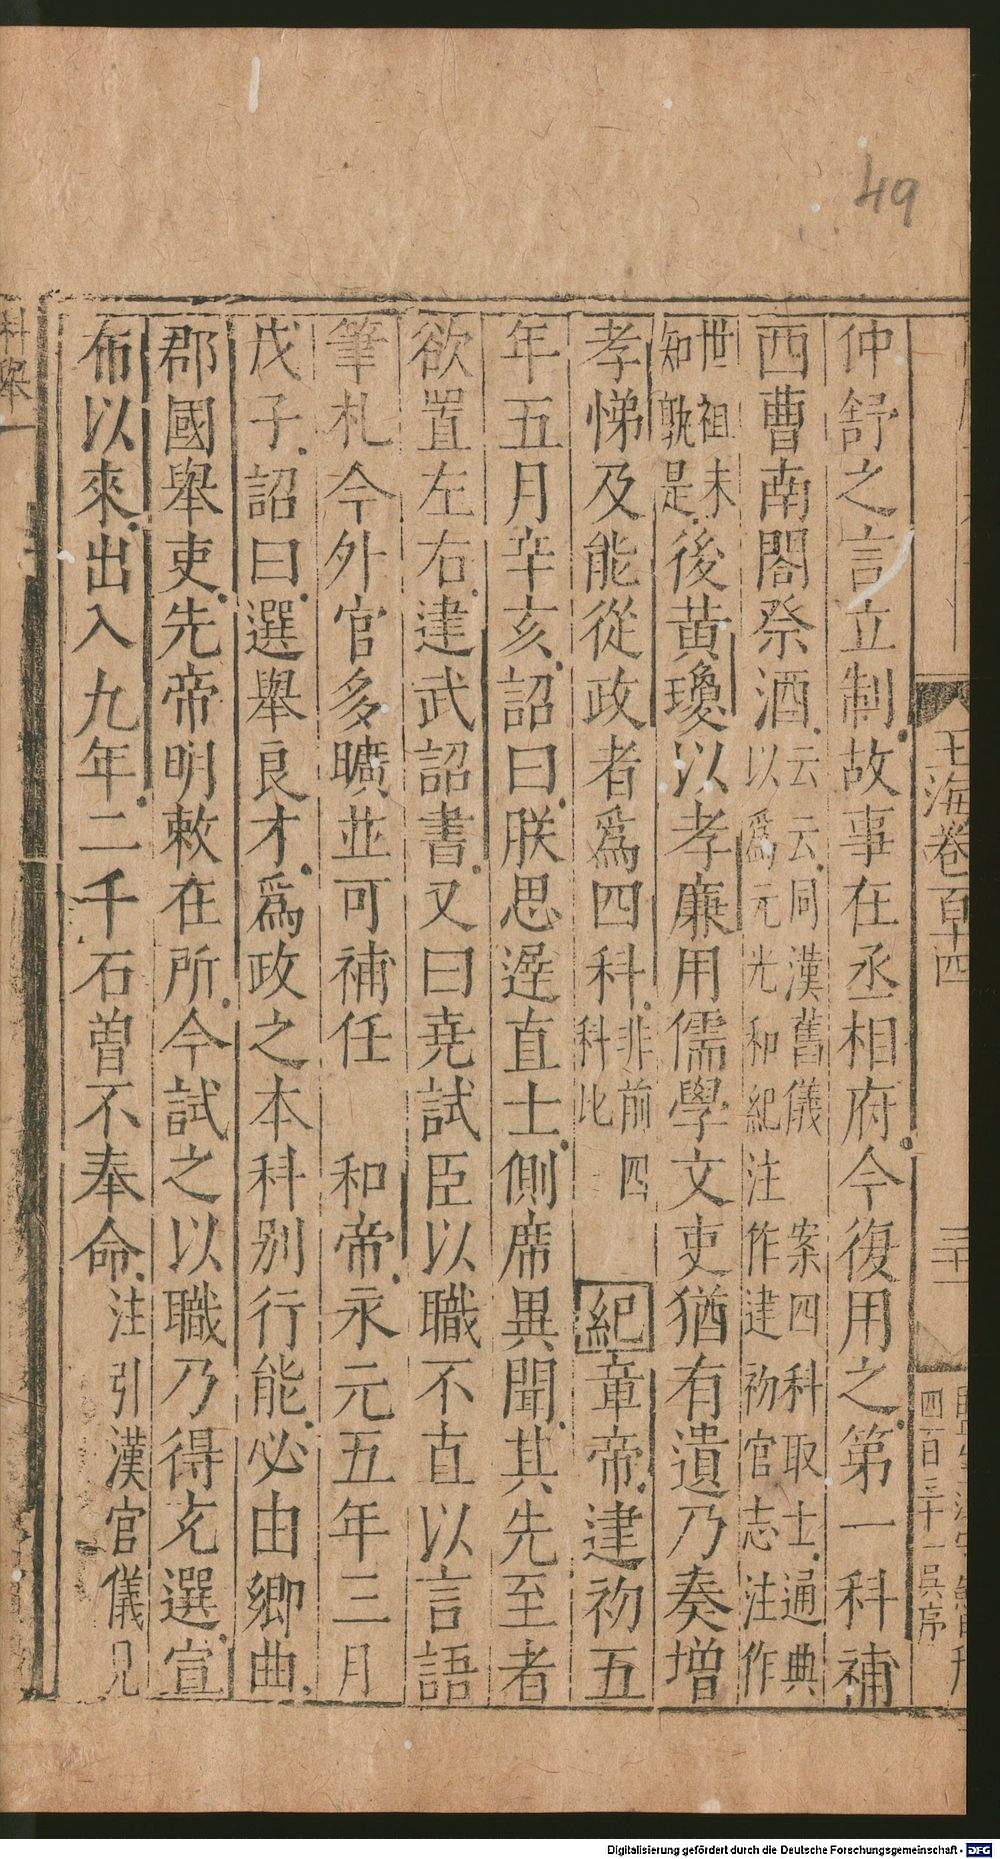 49
玉海卷百十四
三十一
四百三十一吳序
仲舒之言立制故事在丞相府今復用之第一科補
西曹南閤祭酒云云同漢舊儀 案四科取士通典
以爲元光和紀注作建初官志注作
世祖未
知孰是後黃瓊以孝廉用儒學文吏猶有遺乃奏增
孝悌及能從政者爲四科非前四
科此
紀章帝建初五
年五月辛亥詔曰朕思遲直士側席異聞其先至者
欲置左右建武詔書又曰堯試臣以職不直以言語
筆札今外官多曠並可補任 和帝永元五年三月
戊子詔曰選舉良才爲政之本科別行能必由鄉曲
郡國舉吏先帝明敕在所今試之以職乃得充選宣
布以來出入九年二千石曽不奉命注引漢官儀見
科舉一
Digitalisierung gefördert durch die Deutsche Forschungsgemeinschaft - DFG